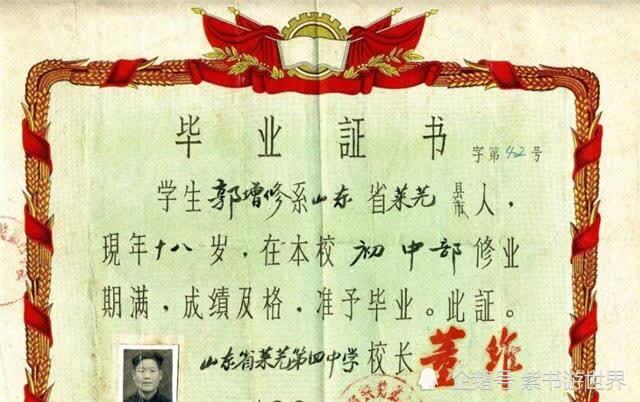 毕业証书
字第42号
学生郭增修系山东省莱芜县市人，
現年十八岁，在本校初中部修业
期满，成绩及格，准予毕业。此証。
山东省莱芜第四中学校长董
企鹅号 素书游世界